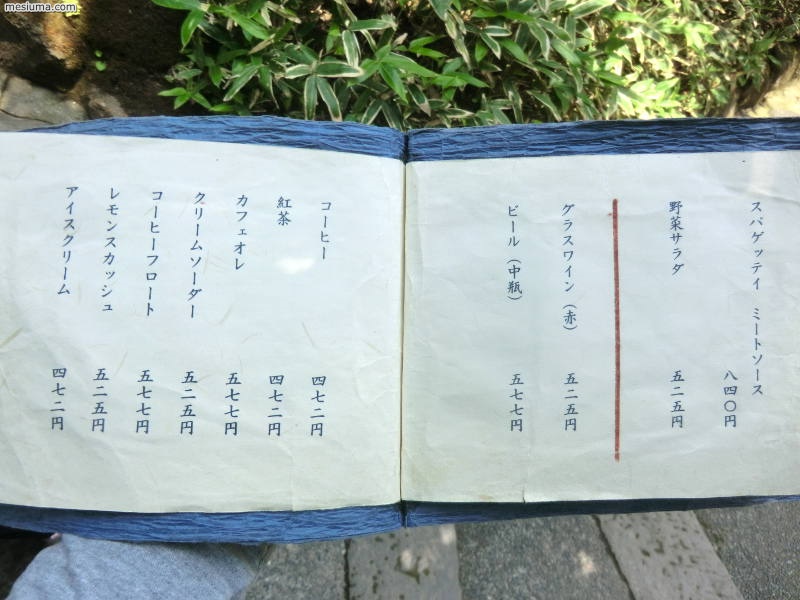 mesluma.com
スパゲッテイ ミートソース
八四〇円
野菜サラダ 五二五円
グラスワイン（赤） 五二五円
ビール（中瓶） 五七七円
コーヒー 四七二円
紅茶 四七二円
カフェオレ 五七七円
クリームソーダー 五二五円
コーヒーフロート 五七七円
レモンスカッシュ 五二五円
アイスクリーム 四七二円